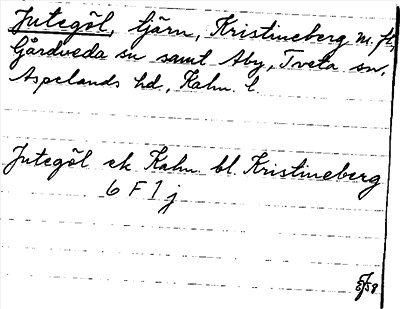 Jutegöl, tjärn, Kristineberg m. fl.,
Gårdveda sn samt Aby, Tveta sn,
Aspelands hd, Kalm. l.
Jutegöl ek. Kalm. bl. Kristineberg
6 F 1 j